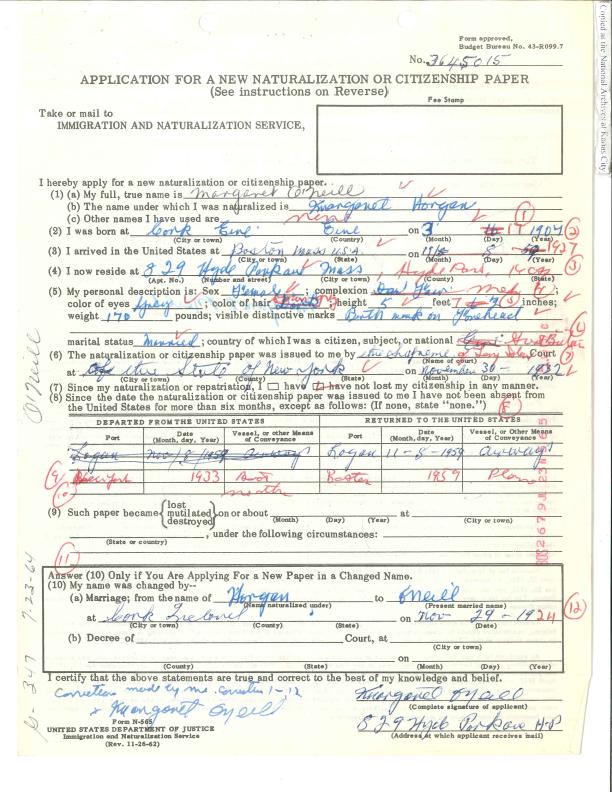 Copied at the National Archives at Kansas City
Form approved,
Budget Bureau No. 43-R099.7
No. 3645015
APPLICATION FOR A NEW NATURALIZATION OR CITIZENSHIP PAPER
(See instructions on Reverse)
Fee Stamp
Take or mail to
IMMIGRATION AND NATURALIZATION SERVICE,
I hereby apply for a new naturalization or citizenship paper.
(1) (a) My full, true name is Margaret O'Neill
(b) The name under which I was naturalized is Margaret Horgan
(c) Other names I have used are none (1)
(2) I was born at Cork Eire Eire on 3 17 1907 (2)
(City or town) (Country) (Month) (Day) (Year)
(3) I arrived in the United States at Boston Mass U.S.A. on 8 1927
(City or town) (State) (Month) (Day) (Year)
(4) I now reside at 829 Hyde Park Ave Mass, Hyde Park, (3)
(Apt. No.) (Number and street) (City or town) (State)
(5) My personal description is: Sex Female; complexion Fair med
color of eyes Grey; color of hair; height 5 feet 7 inches;
weight 170 pounds; visible distinctive marks Birth mark on Forehead
marital status Married; country of which I was a citizen, subject, or national
(6) The naturalization or citizenship paper was issued to me by the Supreme Court (7)
(Name of court)
at the State of New York on November 30 - 1932
(City or town) (State) (Month) (Day) (Year)
(7) Since my naturalization or repatriation, I have have not lost my citizenship in any manner.
(8) Since the date the naturalization or citizenship paper was issued to me I have not been absent from
the United States for more than six months, except as follows: (If none, state "none.") (8)
DEPARTED FROM THE UNITED STATES RETURNED TO THE UNITED STATES
Port Date (Month, day, Year) Vessel, or other Means of Conveyance Port Date (Month, day, Year) Vessel, or Other Means of Conveyance
Logan Nov 8/1959 airways Logan 11-8-1959 airways
(9) New York 1933 Boat Boston 1959 Plane
(10) month
(9) Such paper became lost mutilated destroyed on or about at
(Month) (Day) (Year) (City or town)
, under the following circumstances:
(State or country)
(11)
Answer (10) Only if You Are Applying For a New Paper in a Changed Name.
(10) My name was changed by--
(a) Marriage; from the name of Horgan to O'Neill
(Name naturalized under) (Present married name)
at Cork Ireland on Nov 29 - 1924 (12)
(City or town) (County) (State) (Date)
(b) Decree of Court, at
(City or town)
on
(County) (State) (Month) (Day) (Year)
I certify that the above statements are true and correct to the best of my knowledge and belief.
Corrections made by me. Corrections 1-12
x Margaret O'neill
Margaret O'neill
(Complete signature of applicant)
829 Hyde Park ave H-P
(Address at which applicant receives mail)
Form N-565
UNITED STATES DEPARTMENT OF JUSTICE
Immigration and Naturalization Service
(Rev. 11-26-62)
O'Neill
7-23-64